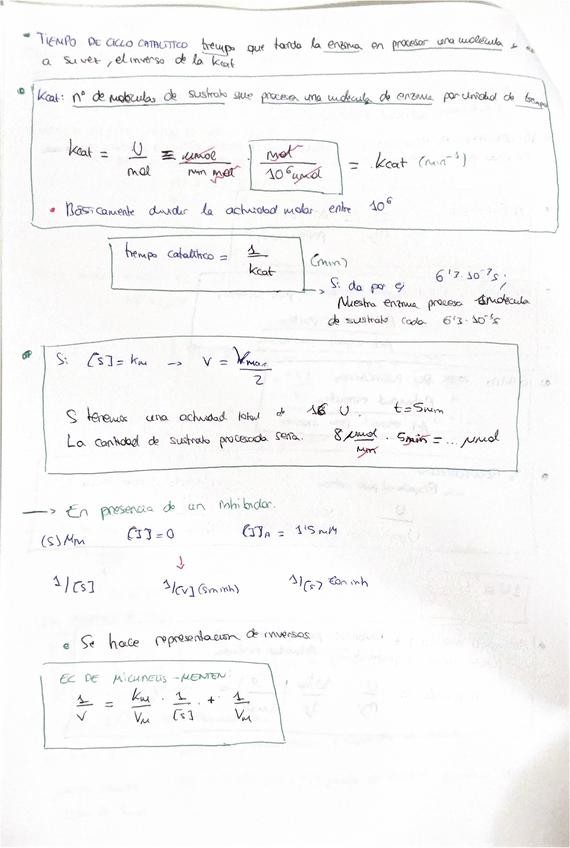 TIEMPO DE CICLO CATALITICO tiempo que tarda la enzima en procesar una molécula
a su vez, el inverso de la Kcat
Kcat: nº de moleculas de sustrato que procesa una molecula de enzima por unidad de tiempo
Kcat = U/mol ≡ μmol/min mol · mol/10^6 μmol = Kcat (min^-1)
• Básicamente dividir la actividad molar entre 10^6
tiempo catalitico = 1/Kcat (min)
→ Si da por ej 6'3·10^-7 s;
Nuestra enzima procesa 1 molecula
de sustrato cada 6'3·10^-7 s
Si [S] = KM → V = Vmax/2
S tenemos una actividad total de 16 U. t=5min
La cantidad de sustrato procesada sería. 8 μmol/min · 5min = ... μmol
→ En presencia de un inhibidor.
(S) Mm [I]=0 [I]A = 1'5 mM
↓
1/[S] 1/[V] (sin inh) 1/[S] con inh
• Se hace representacion de inversos
EC DE MICHAELIS-MENTEN:
1/V = KM/VM · 1/[S] + 1/VM